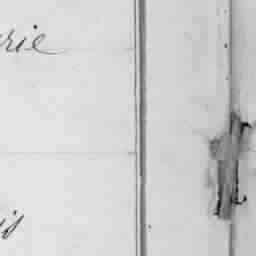 rie
is